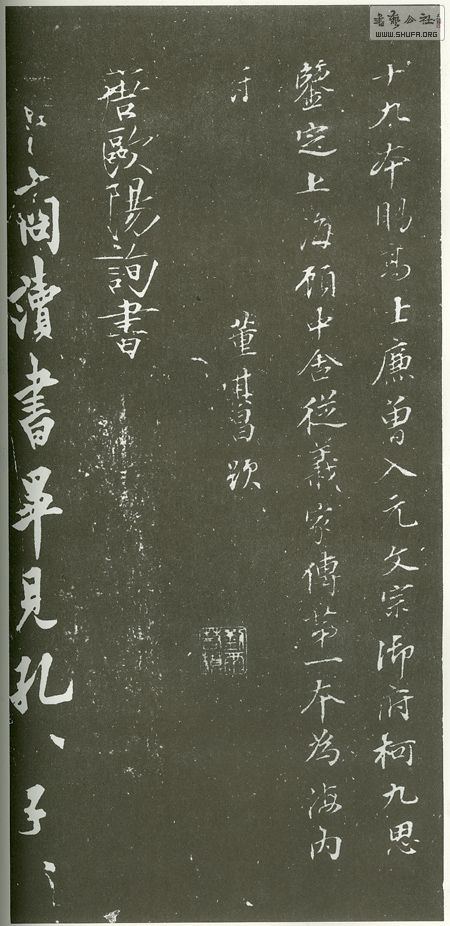 書藝公社
WWW.SHUFA.ORG
十九本賜高士廉曾入元文宗御府柯九思
鑒定上海顧中舍從義家傳第一本為海內
董其昌題
唐歐陽詢書
卜商讀書畢見孔、子、